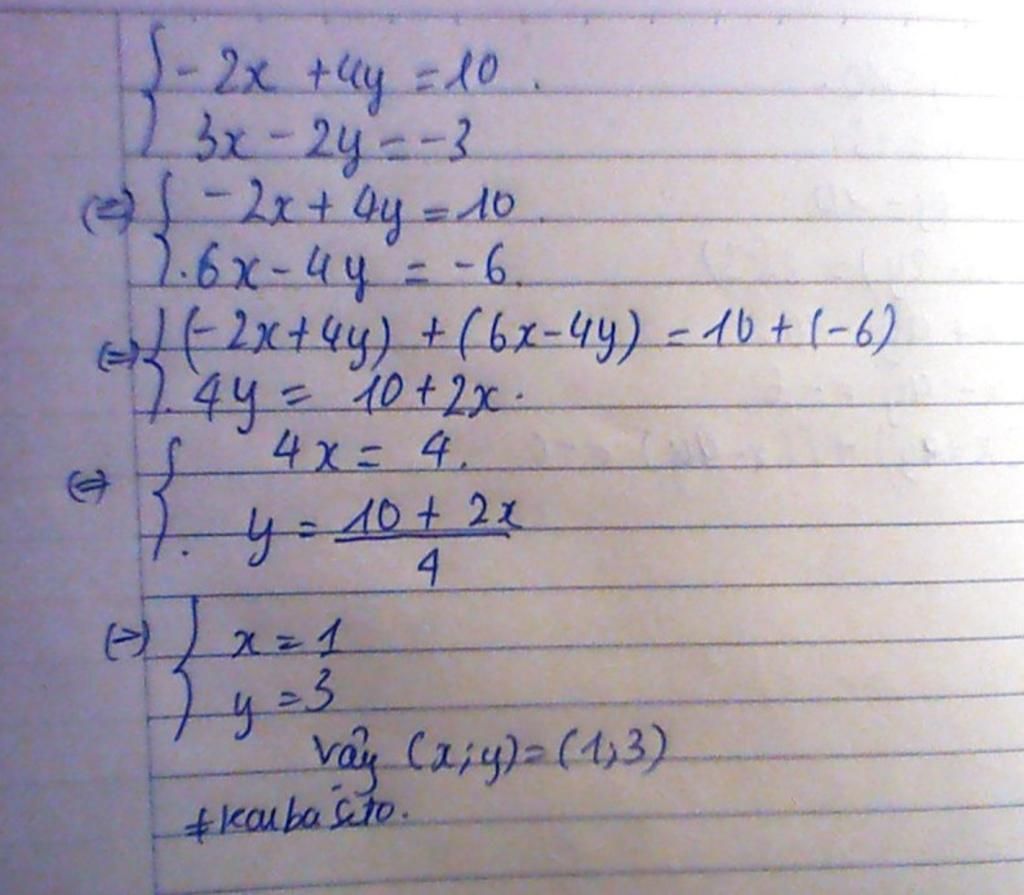 { -2x + 4y = 10 .
3x - 2y = -3
(=) { -2x + 4y = 10 .
. 6x - 4y = -6.
(=) { (-2x+4y) + (6x-4y) = 10 + (-6)
. 4y = 10 + 2x .
(=) { 4x = 4.
. y = \frac{10 + 2x}{4}
(=) { x = 1
y = 3
Vậy (x;y) = (1;3)